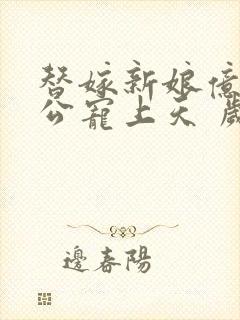 替嫁新娘億
公寵上天 歲
邊春陽